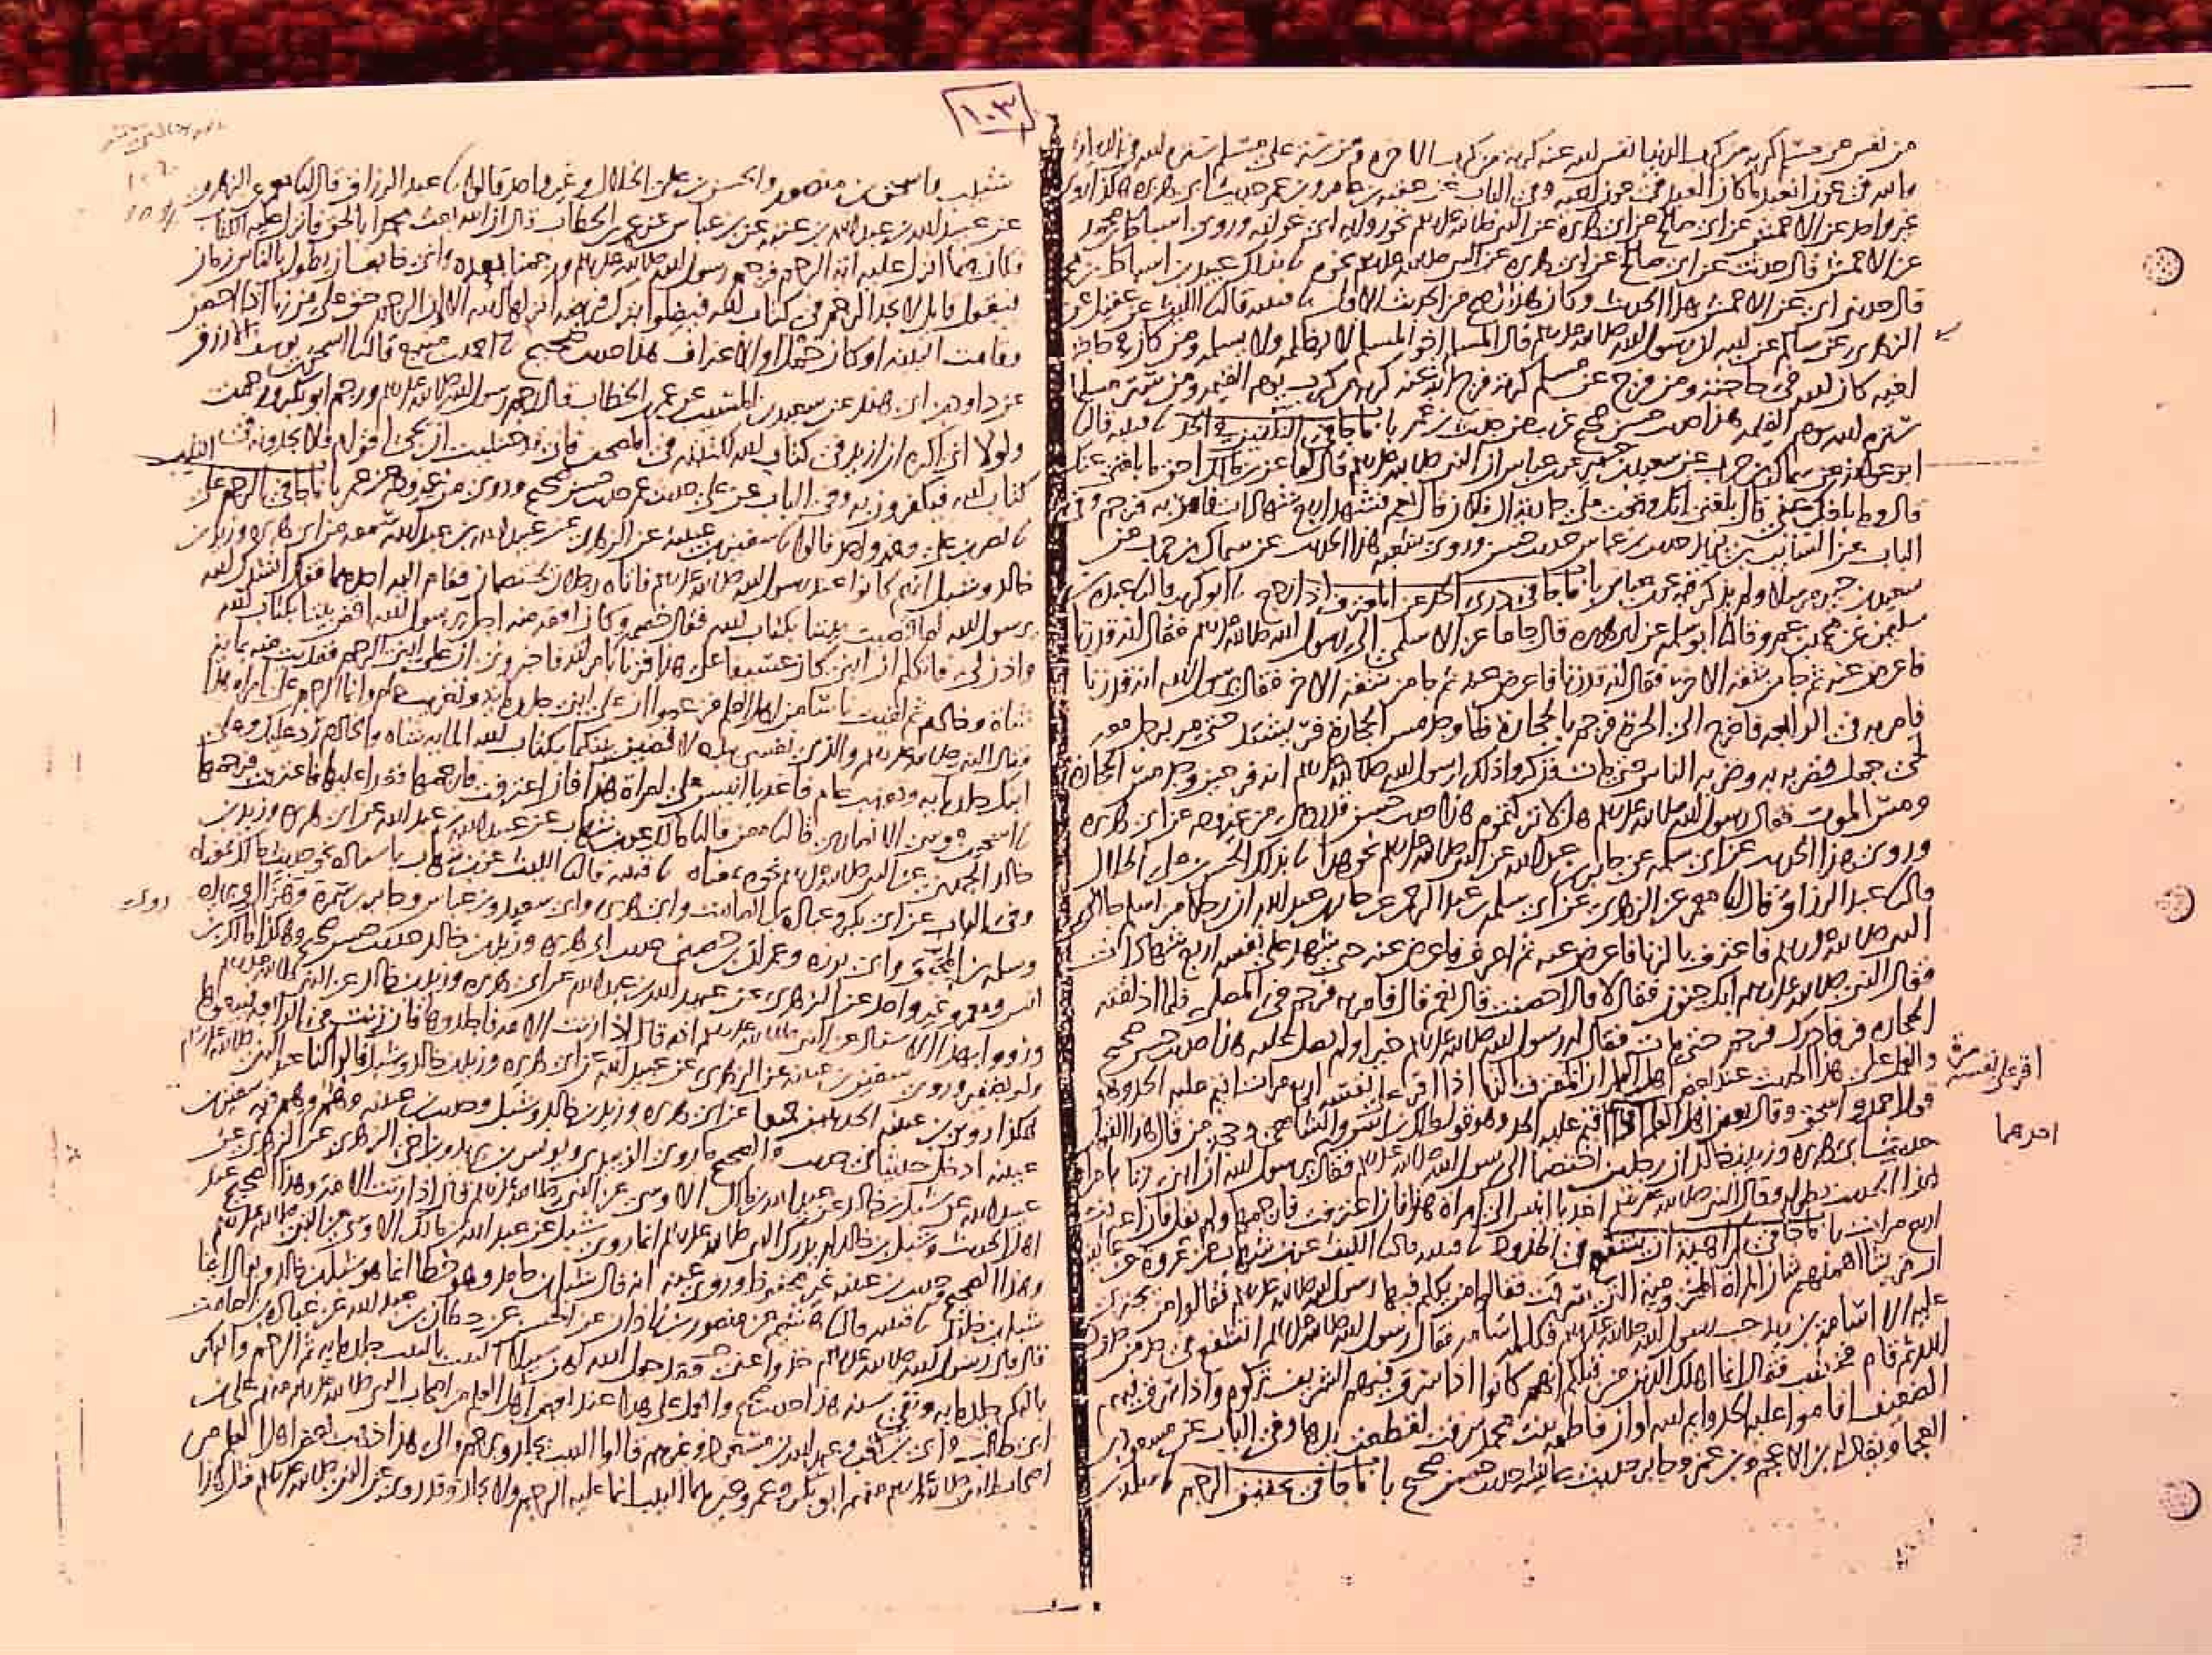 ١٠٣
من نفس عن مسلم كربة من كرب الدنيا نفس الله عنه كربة من كرب الآخرة ومن ستر على مسلم ستره الله في الدنيا
والله في عون العبد ما كان العبد في عون أخيه وفي الباب عن عقبة بن عامر وابن عمر حديث أبي هريرة هكذا روى
غير واحد عن الأعمش عن أبي صالح عن أبي هريرة عن النبي صلى الله عليه وسلم نحو رواية أبي عوانة وروى أسباط بن محمد
عن الأعمش قال حدثت عن أبي صالح عن أبي هريرة عن النبي صلى الله عليه وسلم نحوه نا بذلك عبيد بن أسباط بن محمد
قال حدثني أبي عن الأعمش بهذا الحديث وكان هذا أصح من الحديث الأول نا قتيبة قال نا الليث عن عقيل عن
الزهري عن سالم عن أبيه أن رسول الله صلى الله عليه وسلم قال المسلم أخو المسلم لا يظلمه ولا يسلمه ومن كان في حاجة
أخيه كان الله في حاجته ومن فرج عن مسلم كربة فرج الله عنه كربة من كرب يوم القيمة ومن ستر مسلما
ستره الله يوم القيمة هذا حديث حسن صحيح غريب من حديث ابن عمر باب ما جا في التلقين في الحد نا قتيبة قال نا
أبو عوانة عن سماك بن حرب عن سعيد بن جبير عن ابن عباس أن النبي صلى الله عليه وسلم قال لماعز بن مالك أحق ما بلغني عنك
قال وما بلغك عني قال بلغني أنك وقعت على جارية آل فلان قال نعم فشهد أربع شهادات فأمر به فرجم وفي
الباب عن السائب بن يزيد حديث ابن عباس حديث حسن وروى شعبة هذا الحديث عن سماك بن حرب عن
سعيد بن جبير مرسلا ولم يذكر فيه عن ابن عباس باب ما جا في درء الحد عن المعترف إذا رجع نا أبو كريب قال نا عبدة بن
سليمن عن محمد بن عمرو قال نا أبو سلمة عن أبي هريرة قال جا ماعز الأسلمي إلى رسول الله صلى الله عليه وسلم فقال إنه قد زنا
فأعرض عنه ثم جا من شقه الآخر فقال إنه قد زنا فأعرض عنه ثم جا من شقه الآخر فقال يا رسول الله إنه قد زنا
فأمر به في الرابعة فأخرج إلى الحرة فرجم بالحجارة فلما وجد مس الحجارة فر يشتد حتى مر برجل معه
لحي جمل فضربه به وضربه الناس حتى مات فذكروا ذلك لرسول الله صلى الله عليه وسلم أنه فر حين وجد مس الحجارة
ومس الموت فقال رسول الله صلى الله عليه وسلم هلا تركتموه هذا حديث حسن قد روي من غير وجه عن أبي هريرة
وروي هذا الحديث عن أبي سلمة عن جابر بن عبد الله عن النبي صلى الله عليه وسلم نحو هذا نا بذلك الحسن بن علي الخلال
قال نا عبد الرزاق قال نا معمر عن الزهري عن أبي سلمة بن عبد الرحمن عن جابر بن عبد الله أن رجلا من أسلم جا إلى
النبي صلى الله عليه وسلم فاعترف بالزنا فأعرض عنه ثم اعترف فأعرض عنه حتى شهد على نفسه أربع شهادات
فقال النبي صلى الله عليه وسلم أبك جنون فقال لا قال أحصنت قال نعم قال فأمر به فرجم في المصلى فلما أذلقته
الحجارة فر فأدرك فرجم حتى مات فقال له رسول الله صلى الله عليه وسلم خيرا ولم يصل عليه هذا حديث حسن صحيح
والعمل على هذا الحديث عند بعض أهل العلم أن المعترف بالزنا إذا أقر على نفسه أربع مرات أقيم عليه الحد وهو
قول أحمد وإسحق وقال بعض أهل العلم إذا أقيم عليه الحد وهو قول مالك بن أنس والشافعي وحجة من قال هذا القول
أقر على نفسه مرة
أحدهما
حديث أبي هريرة وزيد بن خالد أن رجلين اختصما إلى رسول الله صلى الله عليه وسلم فقال يا رسول الله إن ابني زنا بامرأة
هذا الحديث بطوله وقال النبي صلى الله عليه وسلم اغد يا أنيس إلى امرأة هذا فإن اعترفت فارجمها ولم يقل فإن اعترفت
أربع مرات باب ما جا في كراهية أن يشفع في الحدود نا قتيبة قال نا الليث عن ابن شهاب عن عروة عن عائشة
أن قريشا أهمهم شأن المرأة المخزومية التي سرقت فقالوا من يكلم فيها رسول الله صلى الله عليه وسلم فقالوا من يجترئ
عليه إلا أسامة بن زيد حب رسول الله صلى الله عليه وسلم فكلمه أسامة فقال رسول الله صلى الله عليه وسلم أتشفع في حد من حدود
الله ثم قام فاختطب فقال إنما أهلك الذين من قبلكم أنهم كانوا إذا سرق فيهم الشريف تركوه وإذا سرق فيهم
الضعيف أقاموا عليه الحد وايم الله لو أن فاطمة بنت محمد سرقت لقطعت يدها وفي الباب عن مسعود بن
العجما ويقال ابن الأعجم وابن عمر وجابر حديث عائشة حديث حسن صحيح باب ما جا في تحقيق الرجم نا سلمة بن
شبيب وإسحق بن منصور والحسن بن علي الخلال وغير واحد قالوا نا عبد الرزاق قال نا معمر عن الزهري
عن عبيد الله بن عبد الله بن عتبة عن ابن عباس عن عمر بن الخطاب قال إن الله بعث محمدا بالحق فأنزل عليه الكتاب
وكان فيما أنزل عليه آية الرجم فرجم رسول الله صلى الله عليه وسلم ورجمنا بعده وإني خائف أن يطول بالناس زمان
فيقول قائل لا نجد الرجم في كتاب الله فيضلوا بترك فريضة أنزلها الله ألا وإن الرجم حق على من زنا إذا أحصن
وقامت البينة أو كان حمل أو الاعتراف هذا حديث صحيح نا أحمد بن منيع قال نا إسحق بن يوسف الأزرق
عن داود بن أبي هند عن سعيد بن المسيب عن عمر بن الخطاب قال رجم رسول الله صلى الله عليه وسلم ورجم أبو بكر ورجمت
ولولا أني أكره أن أزيد في كتاب الله لكتبته في المصحف فإني قد خشيت أن يجيء أقوام فلا يجدونه في
كتاب الله فيكفرون به وفي الباب عن علي حديث عمر حديث حسن صحيح وروي من غير وجه عن عمر باب ما جا في الرجم على
الثيب
نا نصر بن علي وغير واحد قالوا نا سفين بن عيينة عن الزهري عن عبيد الله بن عبد الله سمعه من أبي هريرة وزيد بن
خالد وشبل أنهم كانوا عند رسول الله صلى الله عليه وسلم فأتاه رجلان يختصمان فقام إليه أحدهما فقال أنشدك الله
يا رسول الله لما قضيت بيننا بكتاب الله فقال خصمه وكان أفقه منه أجل يا رسول الله اقض بيننا بكتاب الله
وأذن لي فأتكلم إن ابني كان عسيفا على هذا فزنا بامرأته فأخبروني أن على ابني الرجم ففديت منه بمائة
شاة وخادم ثم لقيت ناسا من أهل العلم فزعموا أن على ابني جلد مائة وتغريب عام وإنما الرجم على امرأة هذا
فقال النبي صلى الله عليه وسلم والذي نفسي بيده لأقضين بينكما بكتاب الله المائة شاة والخادم رد عليك وعلى
ابنك جلد مائة وتغريب عام واغد يا أنيس على امرأة هذا فإن اعترفت فارجمها فغدا عليها فاعترفت فرجمها
نا إسحق بن موسى الأنصاري قال نا معن قال نا مالك عن ابن شهاب عن عبيد الله بن عبد الله عن أبي هريرة وزيد بن
خالد الجهني عن النبي صلى الله عليه وسلم نحوه بمعناه نا قتيبة قال نا الليث عن ابن شهاب بإسناده نحو حديث مالك بمعناه
وفي الباب عن أبي بكر وعبادة بن الصامت وأبي هريرة وأبي سعيد وابن عباس وجابر بن سمرة وهزال وبريدة
وسلمة بن المحبق وأبي برزة وعمران بن حصين حديث أبي هريرة وزيد بن خالد حديث حسن صحيح وهكذا روى مالك بن
أنس ومعمر وغير واحد عن الزهري عن عبيد الله بن عبد الله عن أبي هريرة وزيد بن خالد عن النبي صلى الله عليه وسلم
ورووا بهذا الإسناد عن النبي صلى الله عليه وسلم أنه قال إذا زنت الأمة فاجلدوها فإن زنت في الرابعة فبيعوها
ولو بضفير وروى سفين بن عيينة عن الزهري عن عبيد الله عن أبي هريرة وزيد بن خالد وشبل قالوا كنا عند النبي صلى الله عليه وسلم
هكذا روى ابن عيينة الحديثين جميعا عن أبي هريرة وزيد بن خالد وشبل وحديث ابن عيينة وهم وهم فيه سفين بن
عيينة أدخل حديثا في حديث والصحيح ما روى الزبيدي ويونس بن يزيد وابن أخي الزهري عن الزهري عن
عبيد الله عن شبل بن خالد عن عبد الله بن مالك الأوسي عن النبي صلى الله عليه وسلم قال إذا زنت الأمة وهذا الصحيح عند
أهل الحديث وشبل بن خالد لم يدرك النبي صلى الله عليه وسلم إنما روى شبل عن عبد الله بن مالك الأوسي عن النبي صلى الله عليه وسلم
وهذا الصحيح وحديث ابن عيينة غير محفوظ وروي عنه أنه قال شبل بن حامد وهو خطأ إنما هو شبل بن خالد ويقال أيضا
شبل بن خليد نا قتيبة قال نا هشيم عن منصور بن زاذان عن الحسن عن حطان بن عبد الله عن عبادة بن الصامت
قال قال رسول الله صلى الله عليه وسلم خذوا عني فقد جعل الله لهن سبيلا الثيب بالثيب جلد مائة ثم الرجم والبكر
بالبكر جلد مائة ونفي سنة هذا حديث صحيح والعمل على هذا عند بعض أهل العلم من أصحاب النبي صلى الله عليه وسلم منهم علي بن
أبي طالب وأبي بن كعب وعبد الله بن مسعود وغيرهم قالوا الثيب يجلد ويرجم وإلى هذا ذهب بعض أهل العلم من
أصحاب النبي صلى الله عليه وسلم منهم أبو بكر وعمر وغيرهما الثيب إنما عليه الرجم ولا يجلد وقد روي عن النبي صلى الله عليه وسلم مثل هذا